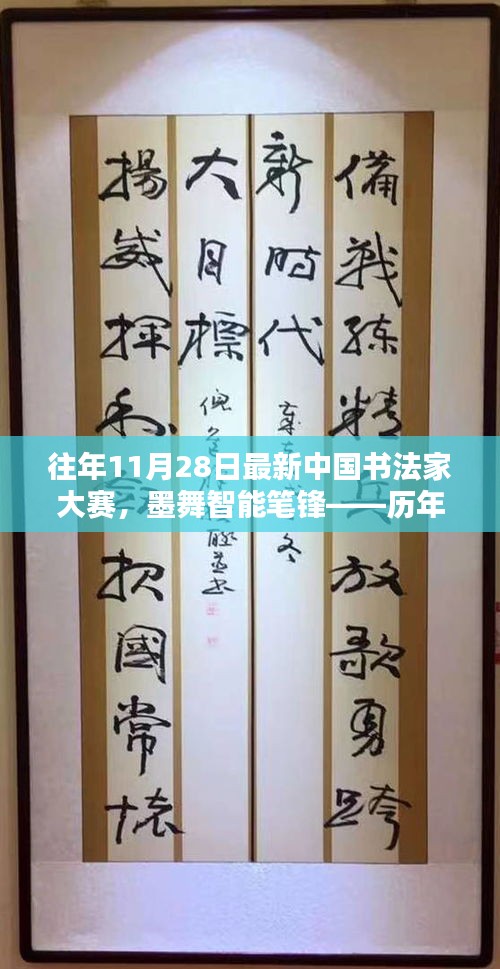 備戰練精兵放歌勇跨
新時代
冬
揚威揮利报國常懷
大目標
往年11月28日最新中国书法家
大赛，墨舞智能笔锋——历年